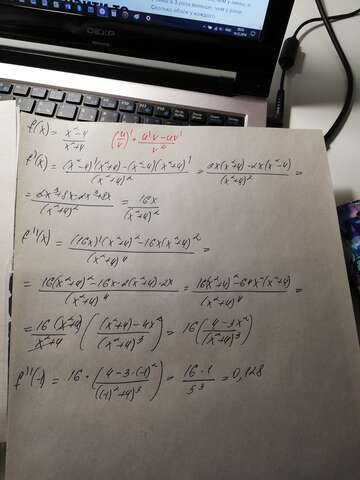 в 3 раза меньше, чем у
Сколько яблок у каждого
DEXP
f(x) = x²-4 / x²+4 (u/v)' = u'v - uv' / v²
f'(x) = (x²-4)'(x²+4)-(x²-4)(x²+4)' / (x²+4)² = 2x(x²+4)-2x(x²-4) / (x²+4)² =
= 2x³+8x-2x³+8x / (x²+4)² = 16x / (x²+4)²
f''(x) = (16x)'(x²+4)²-16x((x²+4)²)' / (x²+4)⁴ =
= 16(x²+4)²-16x·2(x²+4)·2x / (x²+4)⁴ = 16(x²+4)²-64x²(x²+4) / (x²+4)⁴ =
= 16(x²+4) / x²+4 ( (x²+4)-4x² / (x²+4)³ ) = 16( 4-3x² / (x²+4)³ )
f''(-1) = 16 · ( 4-3·(-1)² / ((-1)²+4)³ ) = 16·1 / 5³ = 0,128